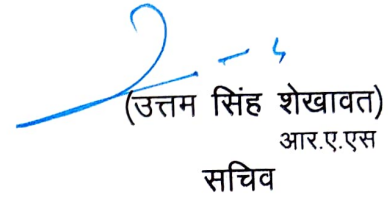 (उत्तम सिंह शेखावत)
आर.ए.एस
सचिव